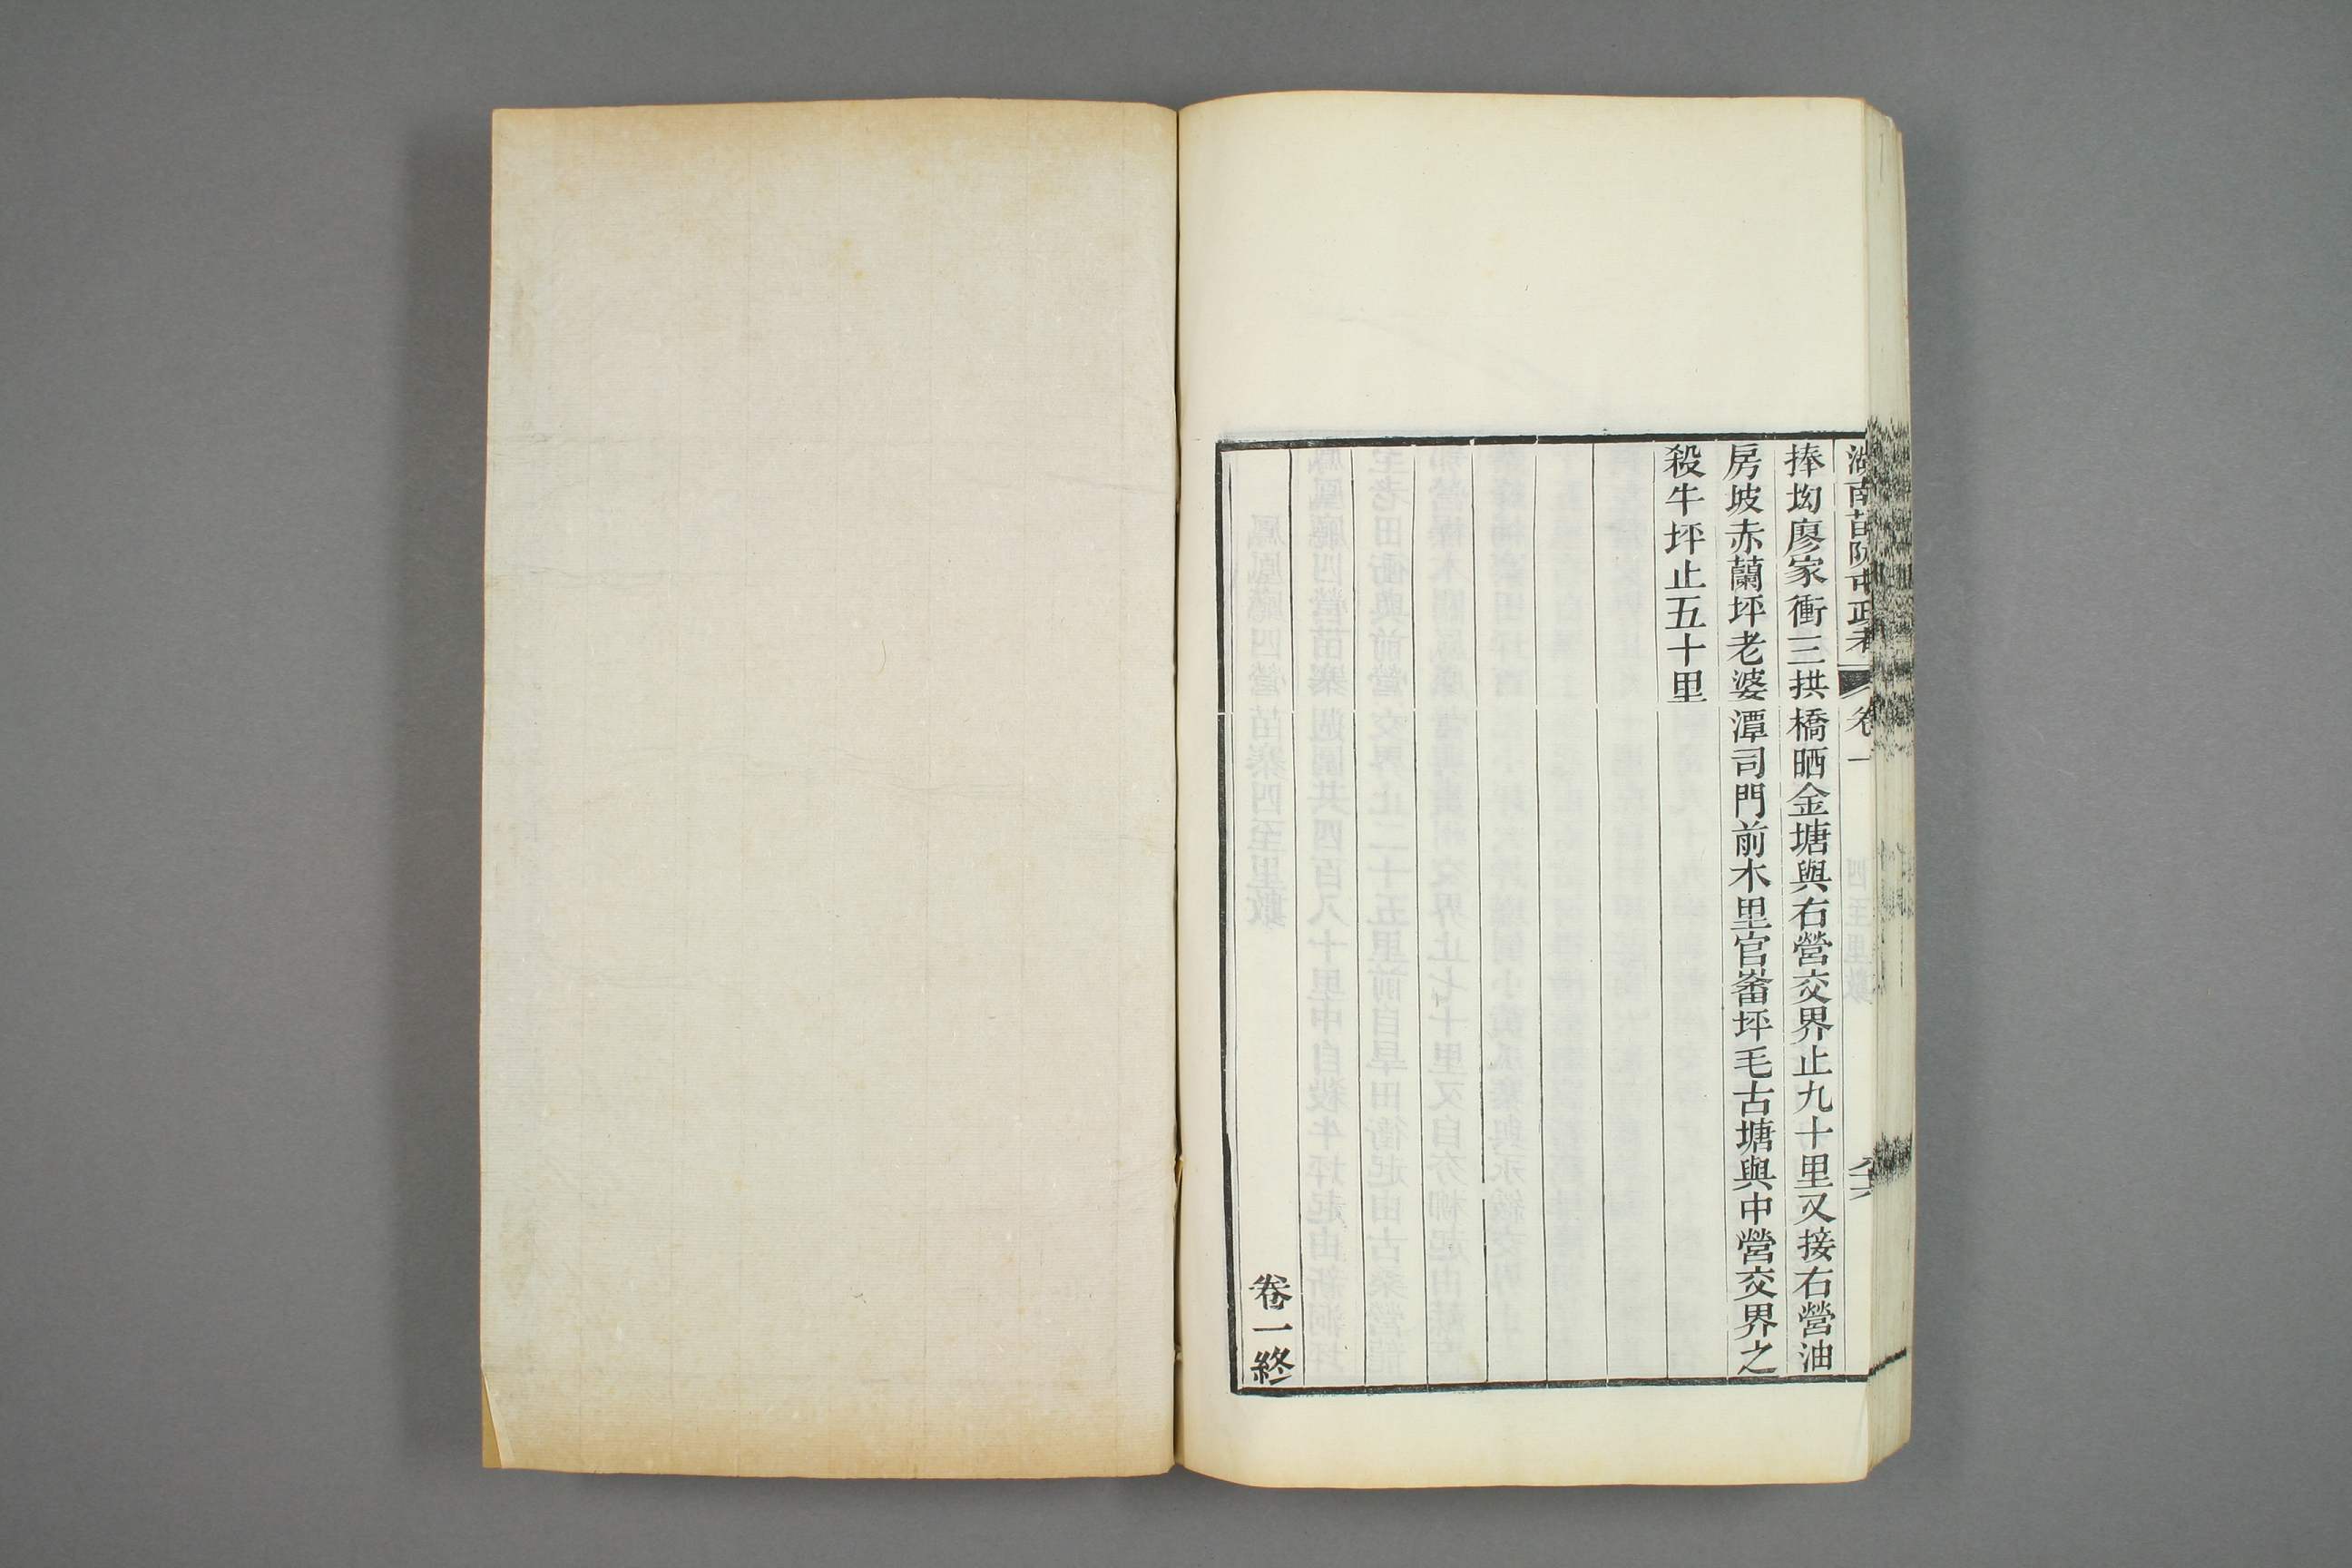 湖南苗防屯政考 卷一 四至里數
捧㘭廖家衝三拱橋晒金塘與右營交界止九十里又接右營油
房坡赤蘭坪老婆潭司門前木里官畨坪毛古塘與中營交界之
殺牛坪止五十里
卷一終